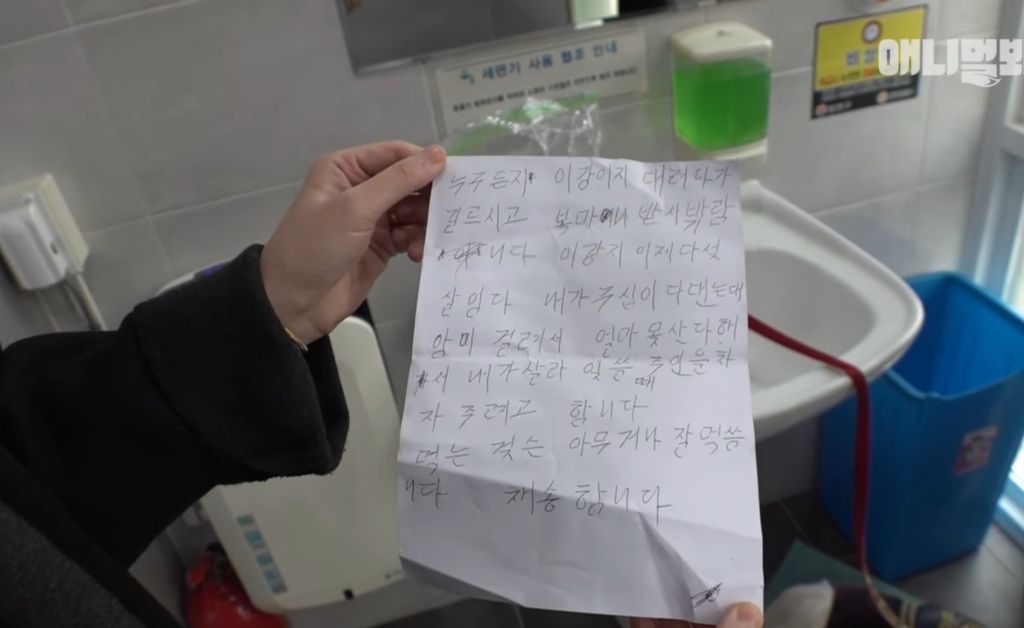 애니멀보
세면기 사용 협조 안내
누구든지 이강이지 대려다가
길르시고 복마니 받시박람
니다 이강지 이제다섯
살임다 내가주십이 다댄는데
암미 걸려서 얼마못산다해
서 내가살라 잇쓸때 주인은차
자 주려고 함니다
먹는 것은 아무거나 잘먹씀
니다 재송합니다